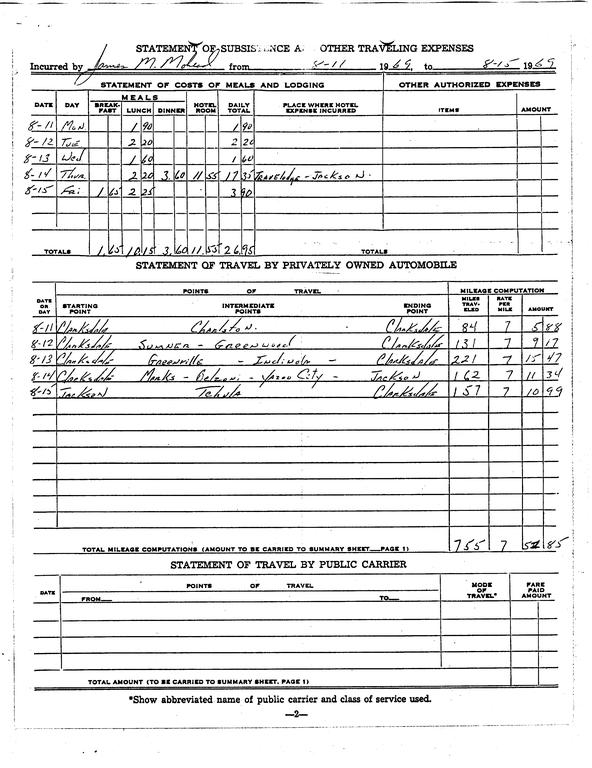 STATEMENT OF SUBSISTENCE A OTHER TRAVELING EXPENSES
Incurred by James M. from 8-11 1969, to 8-15 1969
STATEMENT OF COSTS OF MEALS AND LODGING OTHER AUTHORIZED EXPENSES
DATE DAY MEALS HOTEL ROOM DAILY TOTAL PLACE WHERE HOTEL EXPENSE INCURRED ITEMS AMOUNT
BREAK-FAST LUNCH DINNER
8-11 Mon 1 90 1 90
8-12 Tue 2 20 2 20
8-13 Wed 1 60 1 60
8-14 Thur 2 20 3.60 11 55 17 35 Travelodge - Jackson.
8-15 Fri 1 65 2 25 3 90
TOTALS 1.65 10 15 3.60 11.55 26.95 TOTALS
STATEMENT OF TRAVEL BY PRIVATELY OWNED AUTOMOBILE
POINTS OF TRAVEL MILEAGE COMPUTATION
DATE OR DAY STARTING POINT INTERMEDIATE POINTS ENDING POINT MILES TRAV-ELED RATE PER MILE AMOUNT
8-11 Clarksdale Charleston. Clarksdale 84 7 5 88
8-12 Clarksdale Sumner - Greenwood Clarksdale 131 7 9 17
8-13 Clarksdale Greenville - Indianola - Clarksdale 221 7 15 47
8-14 Clarksdale Marks - Belzoni - Yazoo City - Jackson 162 7 11 34
8-15 Jackson Tchula Clarksdale 157 7 10 99
TOTAL MILEAGE COMPUTATIONS (AMOUNT TO BE CARRIED TO SUMMARY SHEET—PAGE 1) 755 7 52 85
STATEMENT OF TRAVEL BY PUBLIC CARRIER
DATE POINTS OF TRAVEL MODE OF TRAVEL* FARE PAID AMOUNT
FROM— TO—
TOTAL AMOUNT (TO BE CARRIED TO SUMMARY SHEET, PAGE 1)
*Show abbreviated name of public carrier and class of service used.
—2—